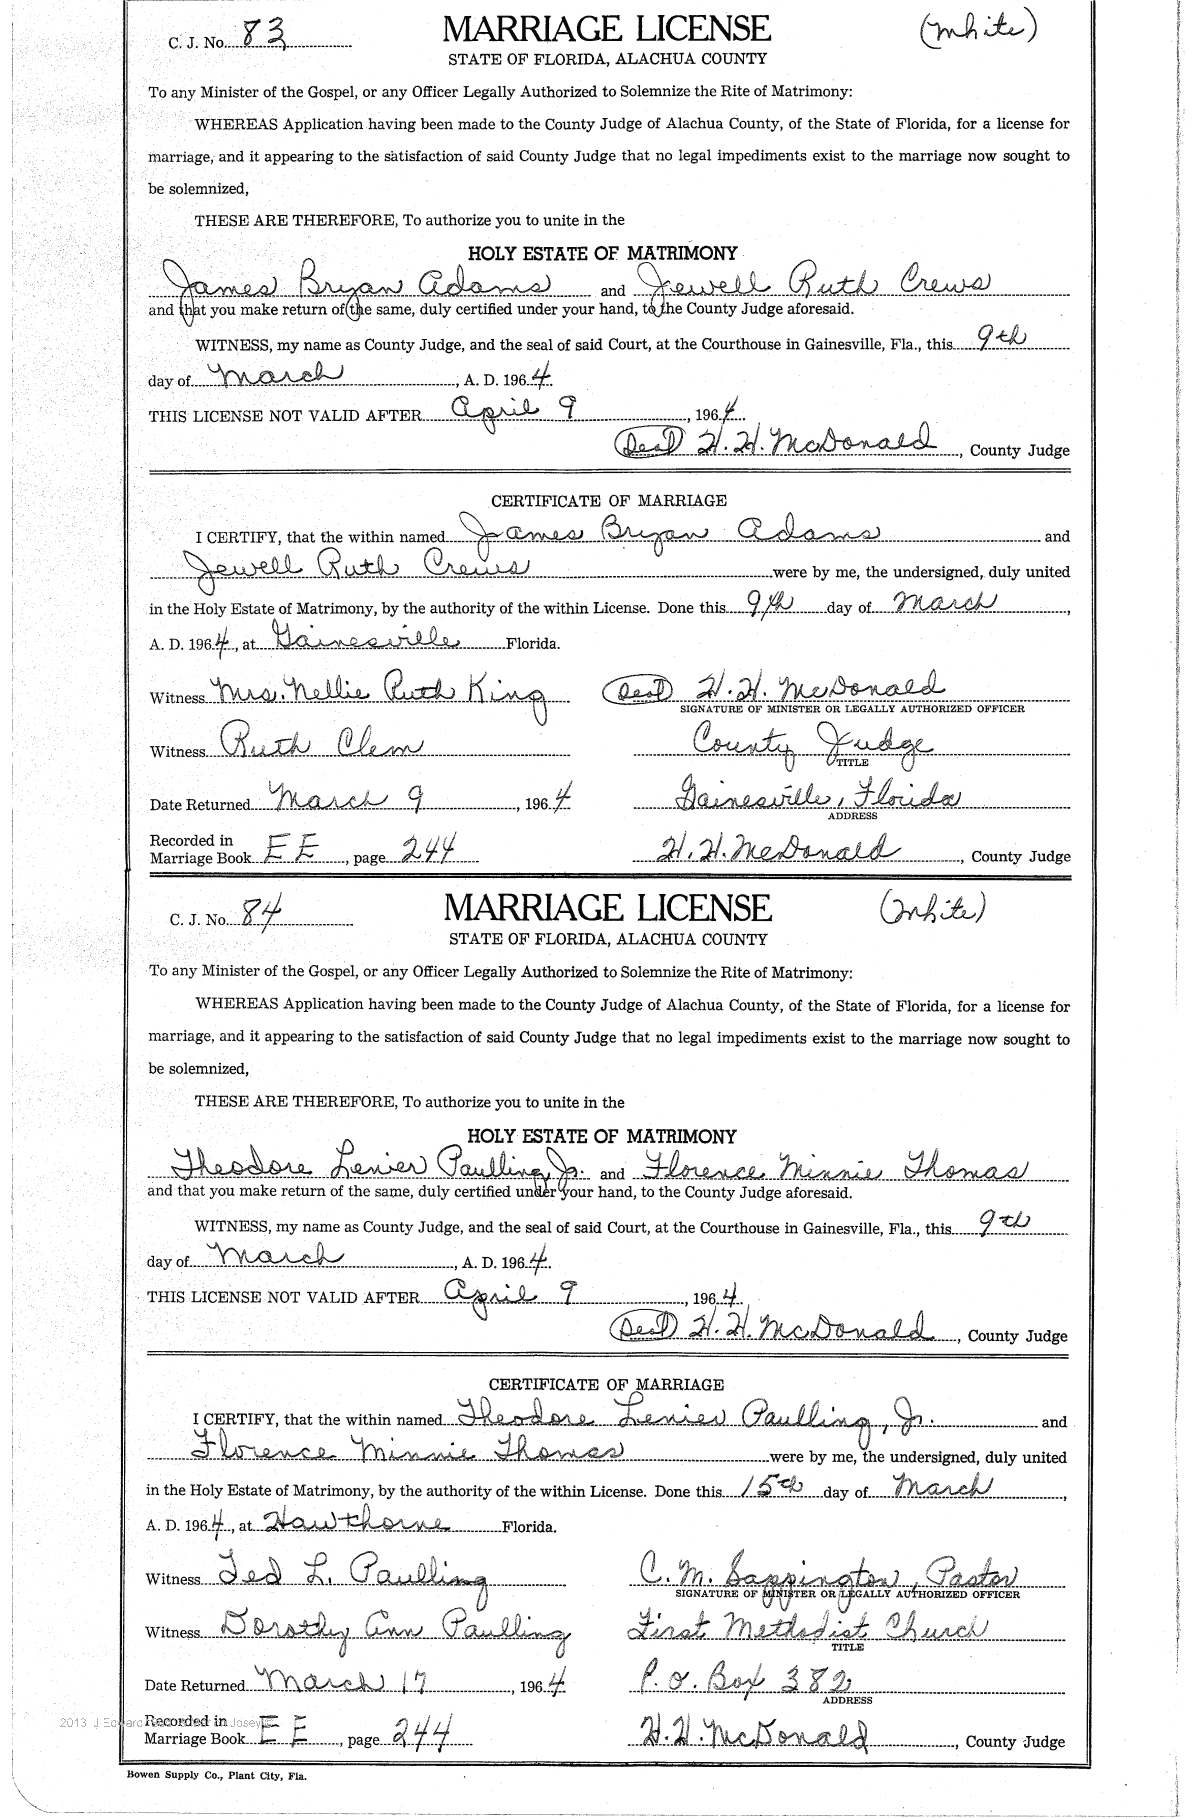 C. J. No. 83 MARRIAGE LICENSE (White)
STATE OF FLORIDA, ALACHUA COUNTY
To any Minister of the Gospel, or any Officer Legally Authorized to Solemnize the Rite of Matrimony:
WHEREAS Application having been made to the County Judge of Alachua County, of the State of Florida, for a license for
marriage, and it appearing to the satisfaction of said County Judge that no legal impediments exist to the marriage now sought to
be solemnized,
THESE ARE THEREFORE, To authorize you to unite in the
HOLY ESTATE OF MATRIMONY
James Bryan Adams and Jewell Ruth Crews
and that you make return of the same, duly certified under your hand, to the County Judge aforesaid.
WITNESS, my name as County Judge, and the seal of said Court, at the Courthouse in Gainesville, Fla., this 9th
day of March, A. D. 1964.
THIS LICENSE NOT VALID AFTER April 9, 1964
(Seal) H. H. McDonald, County Judge
CERTIFICATE OF MARRIAGE
I CERTIFY, that the within named James Bryan Adams and
Jewell Ruth Crews were by me, the undersigned, duly united
in the Holy Estate of Matrimony, by the authority of the within License. Done this 9th day of March,
A. D. 1964, at Gainesville Florida.
Witness Mrs. Nellie Ruth King (Seal) H. H. McDonald
SIGNATURE OF MINISTER OR LEGALLY AUTHORIZED OFFICER
Witness Ruth Clem County Judge
TITLE
Date Returned March 9, 1964 Gainesville, Florida
ADDRESS
Recorded in
Marriage Book EE, page 244 H. H. McDonald, County Judge
C. J. No. 84 MARRIAGE LICENSE (White)
STATE OF FLORIDA, ALACHUA COUNTY
To any Minister of the Gospel, or any Officer Legally Authorized to Solemnize the Rite of Matrimony:
WHEREAS Application having been made to the County Judge of Alachua County, of the State of Florida, for a license for
marriage, and it appearing to the satisfaction of said County Judge that no legal impediments exist to the marriage now sought to
be solemnized,
THESE ARE THEREFORE, To authorize you to unite in the
HOLY ESTATE OF MATRIMONY
Theodore Lenier Paulling, Jr. and Florence Minnie Thomas
and that you make return of the same, duly certified under your hand, to the County Judge aforesaid.
WITNESS, my name as County Judge, and the seal of said Court, at the Courthouse in Gainesville, Fla., this 9th
day of March, A. D. 1964.
THIS LICENSE NOT VALID AFTER April 9, 1964
(Seal) H. H. McDonald, County Judge
CERTIFICATE OF MARRIAGE
I CERTIFY, that the within named Theodore Lenier Paulling, Jr. and
Florence Minnie Thomas were by me, the undersigned, duly united
in the Holy Estate of Matrimony, by the authority of the within License. Done this 15th day of March,
A. D. 1964, at Hawthorne Florida.
Witness Ted L. Paulling C. M. Sappington, Pastor
SIGNATURE OF MINISTER OR LEGALLY AUTHORIZED OFFICER
Witness Dorothy Ann Paulling First Methodist Church
TITLE
Date Returned March 17, 1964 P. O. Box 382
ADDRESS
2013 J
Recorded in
Marriage Book EE, page 244 H. H. McDonald, County Judge
Bowen Supply Co., Plant City, Fla.